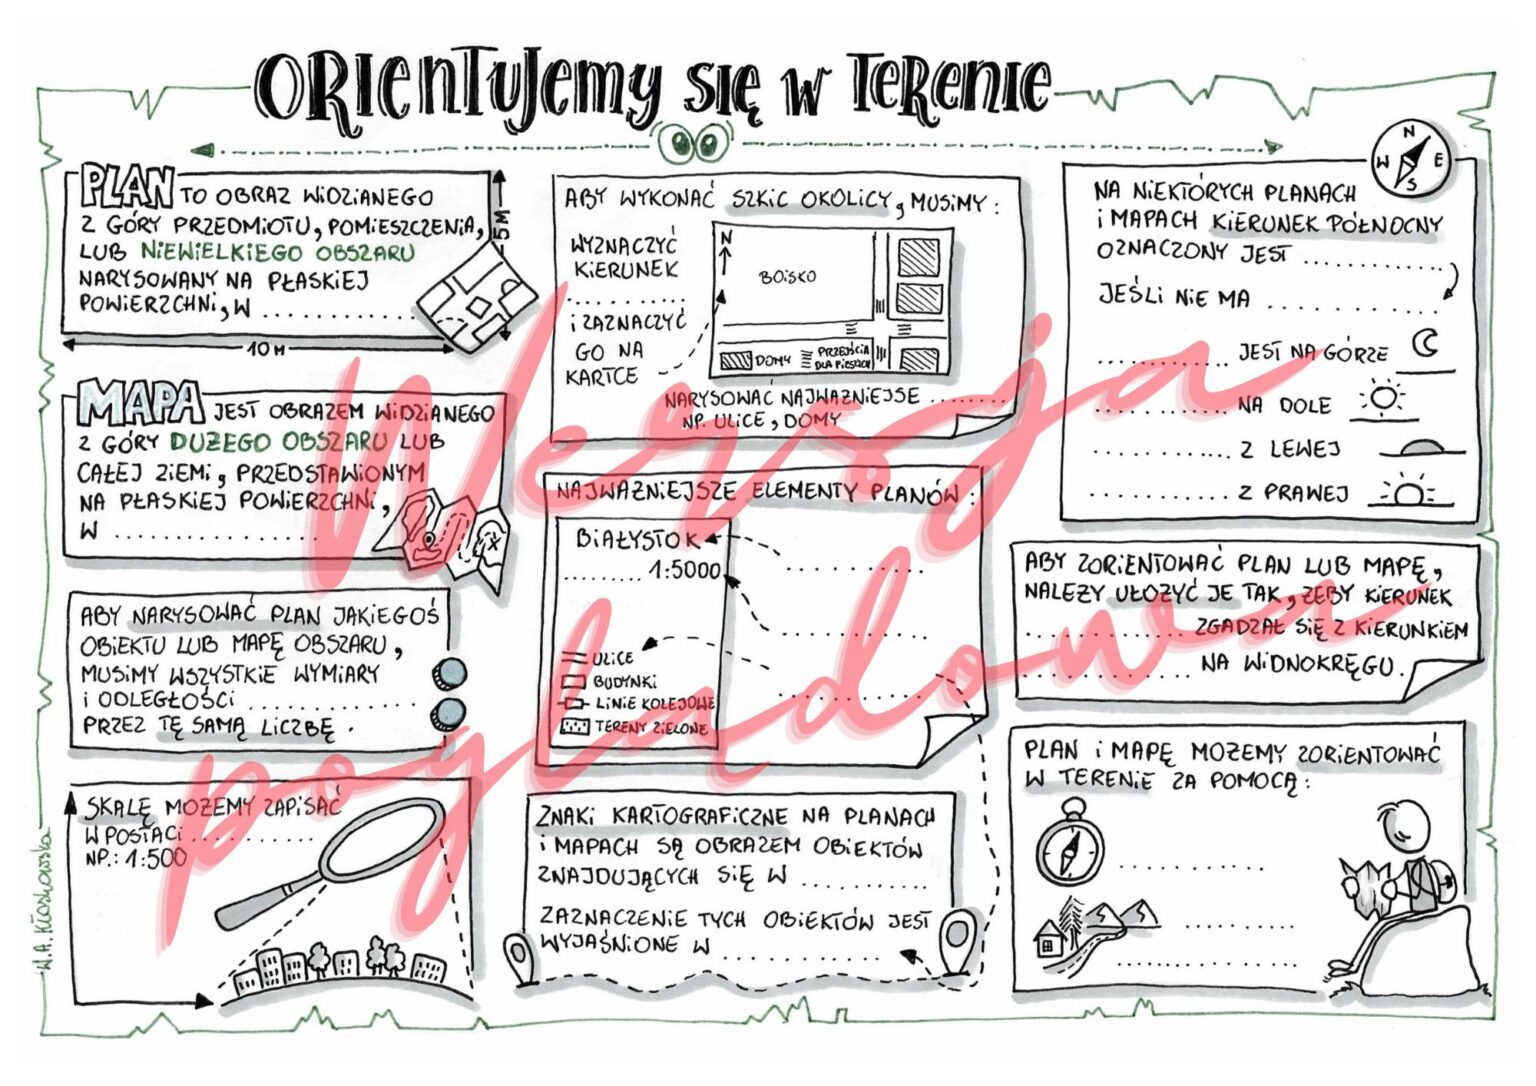 ORIENTUJEMY SIĘ W TERENIE
PLAN TO OBRAZ WIDZIANEGO
Z GÓRY PRZEDMIOTU, POMIESZCZENIA,
LUB NIEWIELKIEGO OBSZARU
NARYSOWANY NA PŁASKIEJ
POWIERZCHNI, W ..............
5 M
10 M
MAPA JEST OBRAZEM WIDZIANEGO
Z GÓRY DUŻEGO OBSZARU LUB
CAŁEJ ZIEMI, PRZEDSTAWIONYM
NA PŁASKIEJ POWIERZCHNI,
W ..................
ABY NARYSOWAĆ PLAN JAKIEGOŚ
OBIEKTU LUB MAPĘ OBSZARU,
MUSIMY WSZYSTKIE WYMIARY
I ODLEGŁOŚCI ................
PRZEZ TĘ SAMĄ LICZBĘ.
SKALĘ MOŻEMY ZAPISAĆ
W POSTACI ............
NP.: 1:500
W.A. Kłoskowska
ABY WYKONAĆ SZKIC OKOLICY, MUSIMY:
WYZNACZYĆ
KIERUNEK
............
I ZAZNACZYĆ
GO NA
KARTCE
N
BOISKO
DOMY
PRZEJŚCIA
DLA PIESZYCH
NARYSOWAĆ NAJWAŻNIEJSZE .........
NP. ULICE, DOMY
NAJWAŻNIEJSZE ELEMENTY PLANÓW:
BIAŁYSTOK
......... 1:5000
ULICE
BUDYNKI
LINIE KOLEJOWE
TERENY ZIELONE
..............
..............
..............
ZNAKI KARTOGRAFICZNE NA PLANACH
I MAPACH SĄ OBRAZEM OBIEKTÓW
ZNAJDUJĄCYCH SIĘ W ............
ZAZNACZENIE TYCH OBIEKTÓW JEST
WYJAŚNIONE W ..................
N
W E
S
NA NIEKTÓRYCH PLANACH
I MAPACH KIERUNEK PÓŁNOCNY
OZNACZONY JEST ..............
JEŚLI NIE MA ..............
............ JEST NA GÓRZE
............ NA DOLE
............ Z LEWEJ
............ Z PRAWEJ
ABY ZORIENTOWAĆ PLAN LUB MAPĘ,
NALEŻY UŁOŻYĆ JE TAK, ŻEBY KIERUNEK
.............. ZGADZAŁ SIĘ Z KIERUNKIEM
.............. NA WIDNOKRĘGU.
PLAN I MAPĘ MOŻEMY ZORIENTOWAĆ
W TERENIE ZA POMOCĄ:
..............
..................
Wersja
poglądowa